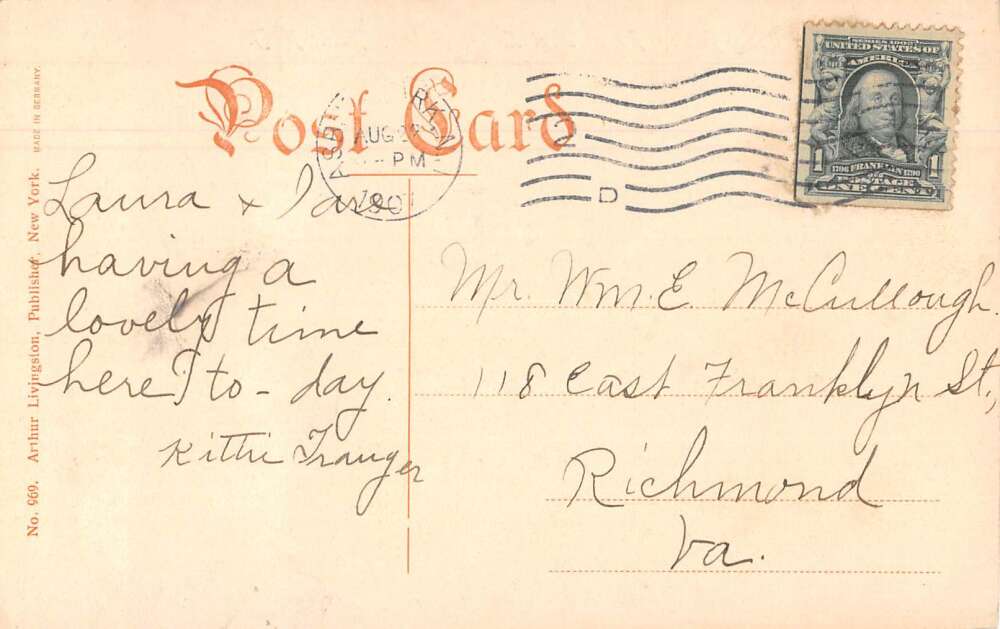 Post Card
AUG
PM
190
D
SERIES 1902
UNITED STATES OF
AMERICA
1 1
1706 FRANKLIN 1790
POSTAGE
ONE CENT
Laura & I are
having a
lovely time
here to-day.
Kittie Trauger
Mr. Wm. E. McCullough.
118 East Franklyn St.,
Richmond
Va.
No. 969. Arthur Livingston, Publisher, New York. MADE IN GERMANY.